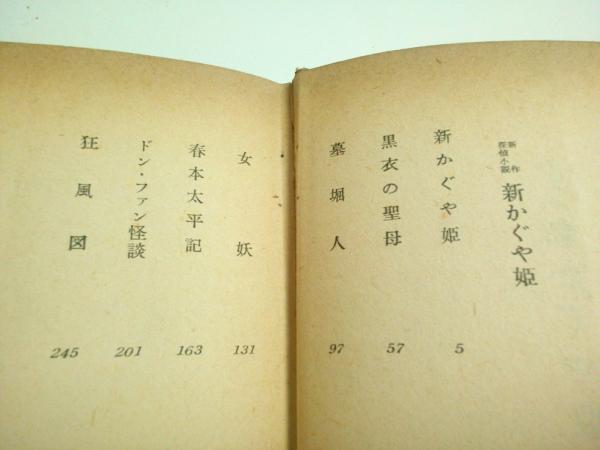 新作
探偵小説
新かぐや姫
新かぐや姫
5
黒衣の聖母
57
墓堀人
97
女妖
131
春本太平記
163
ドン・ファン怪談
201
狂風図
245